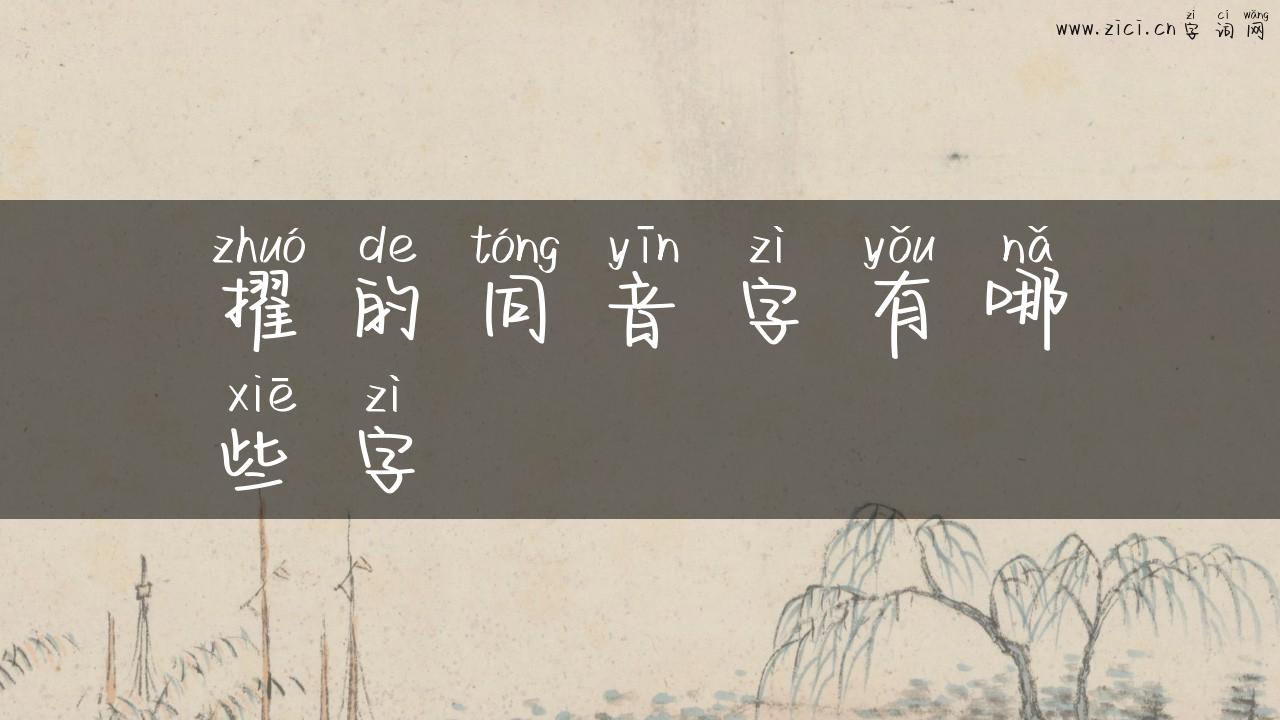 zì cí wǎng
www.zici.cn 字词网
zhuó de tóng yīn zì yǒu nǎ
擢的同音字有哪
xiē zì
些字